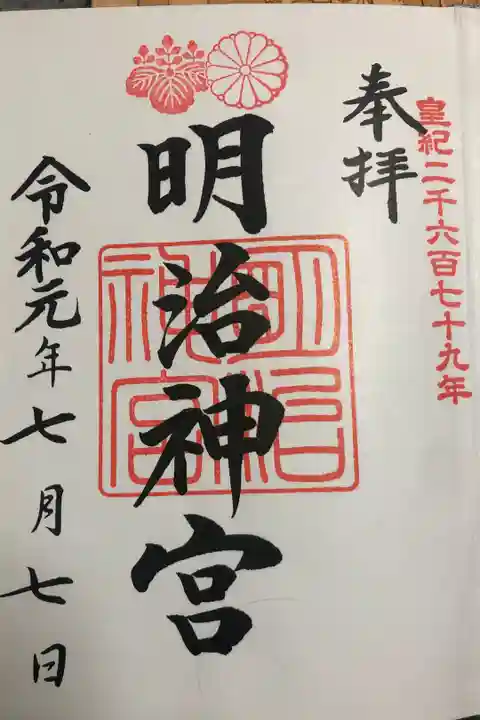 皇紀二千六百七十九年
奉拝
明治神宮
明治神宮
令和元年七月七日